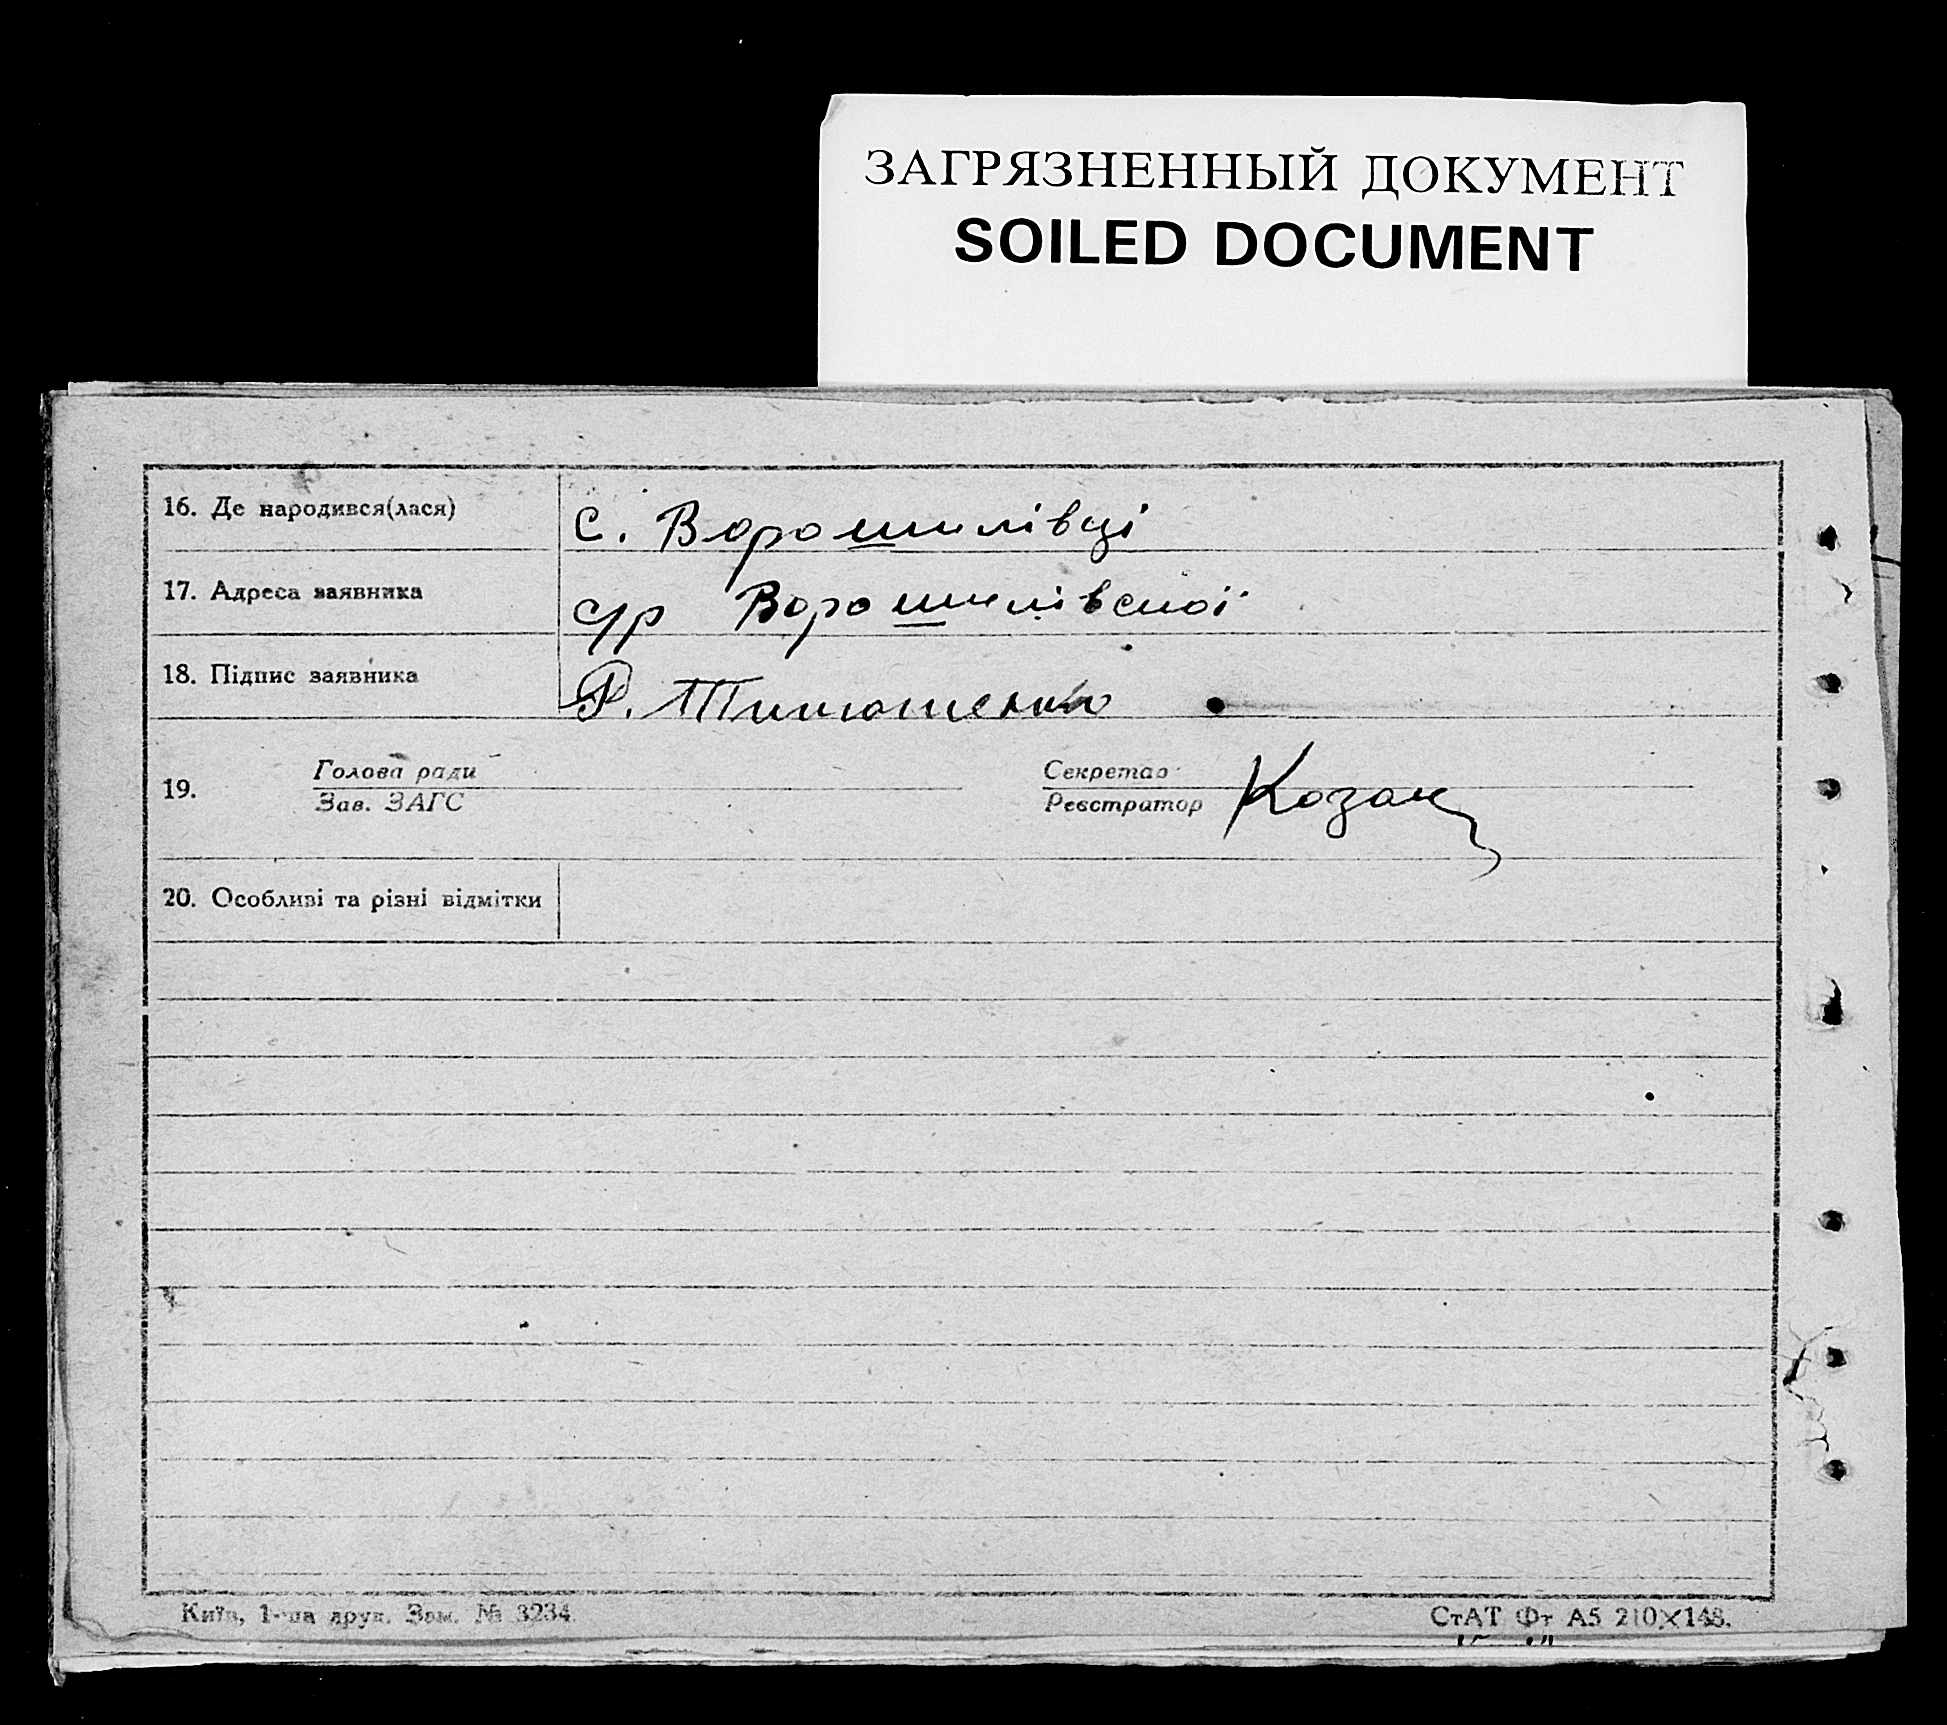 ЗАГРЯЗНЕННЫЙ ДОКУМЕНТ
SOILED DOCUMENT
16. Де народився(лася) с. Ворошилівці
17. Адреса заявника с/р Ворошилівської
18. Підпис заявника Р. Тимошенко
19. Голова ради Секретар Козак
Зав. ЗАГС Реєстратор
20. Особливі та різні відмітки
Київ, 1-ша друк. Зам. № 3234
СтАТ Фт А5 210×148.